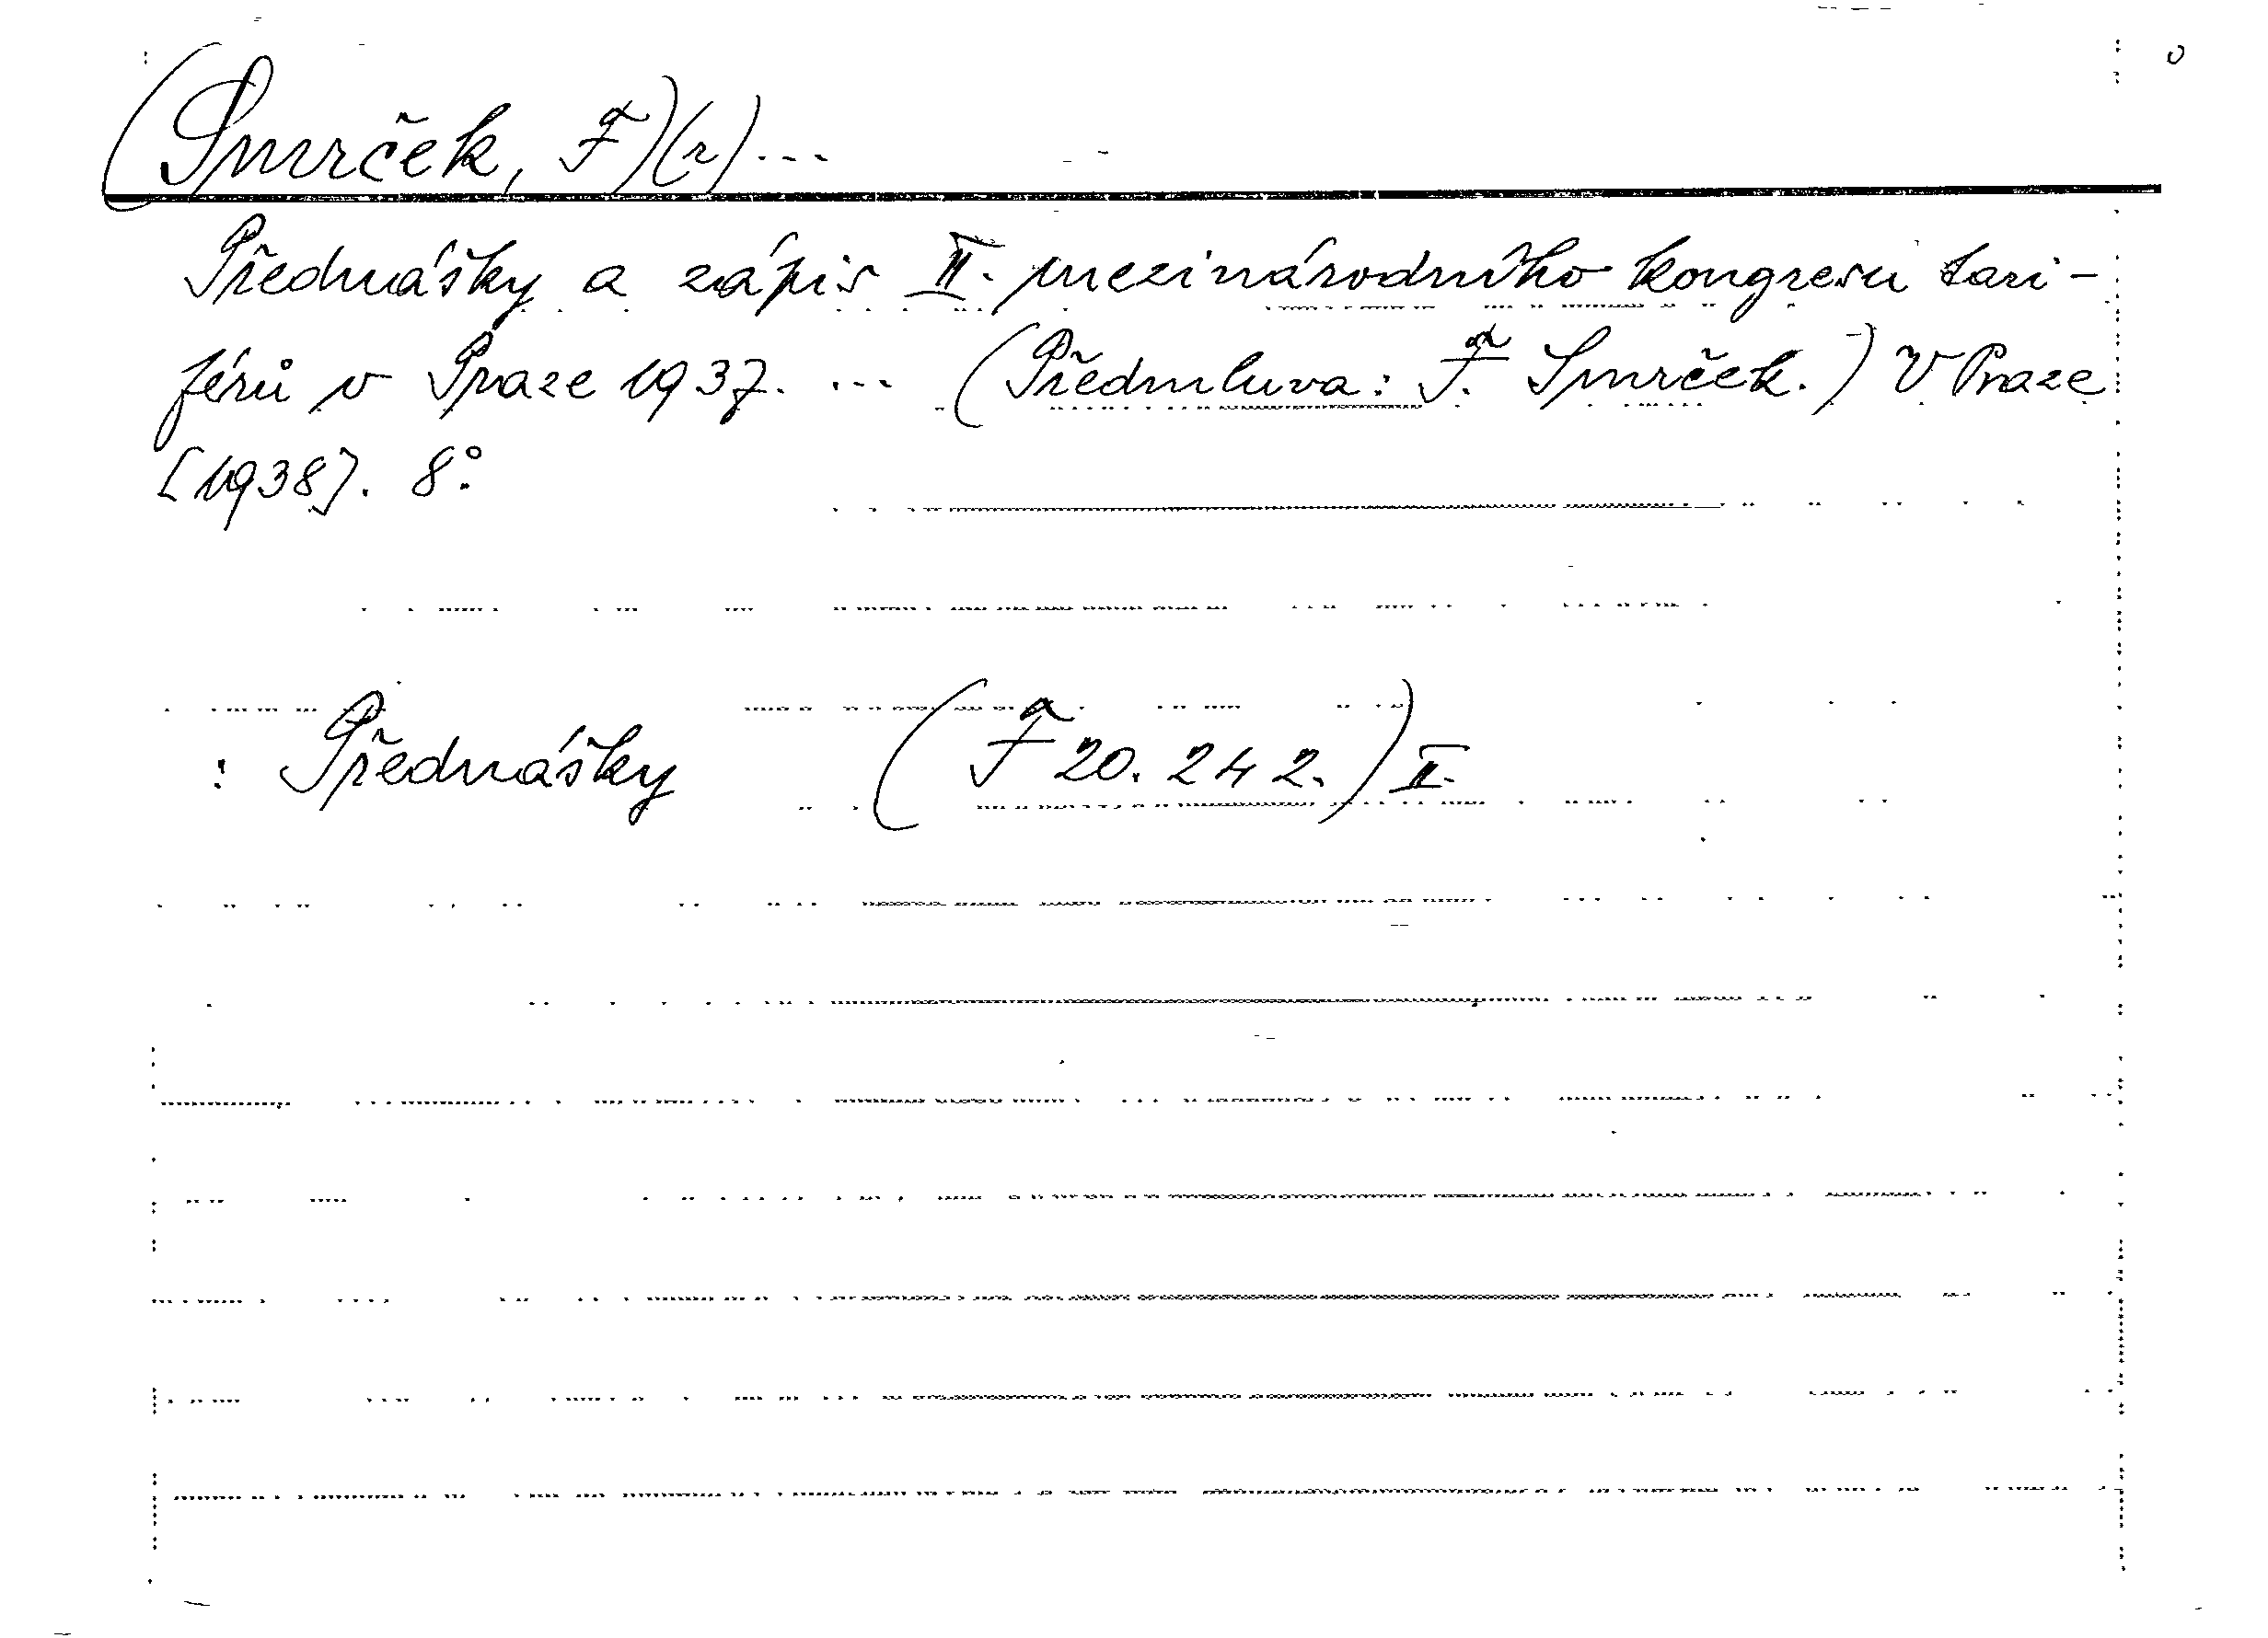 (Smrček, F)(r)...
Přednášky a zápis II. mezinárodního kongresu tari-
férů v Praze 1937. ... (Předmluva: F. Smrček.) V Praze
[1938]. 8°.
: Přednášky (F 20.242.) II.